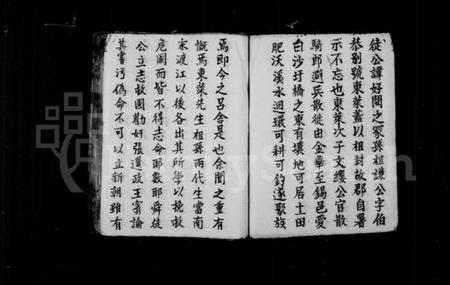 徒公諱好問之冢孫祖謙公字伯
恭别號東萊蓋以祖封故郡自署
示不忘也東萊次子文纓公官散
騎郎避兵散徙由金華至錫邑愛
白沙圩橋之東有壤地可居土田
肥沃溪水迴環可耕可釣遂聚族
焉即今之呂舍是也余聞之重有
慨焉東萊先生祖孫兩代生當南
宋渡江以後各出其所學以挽救
危局而皆不得志命耶數耶舜徒
公立志救國勸奸張邕政王賓論
其事污偽命不可以立新朝雖有